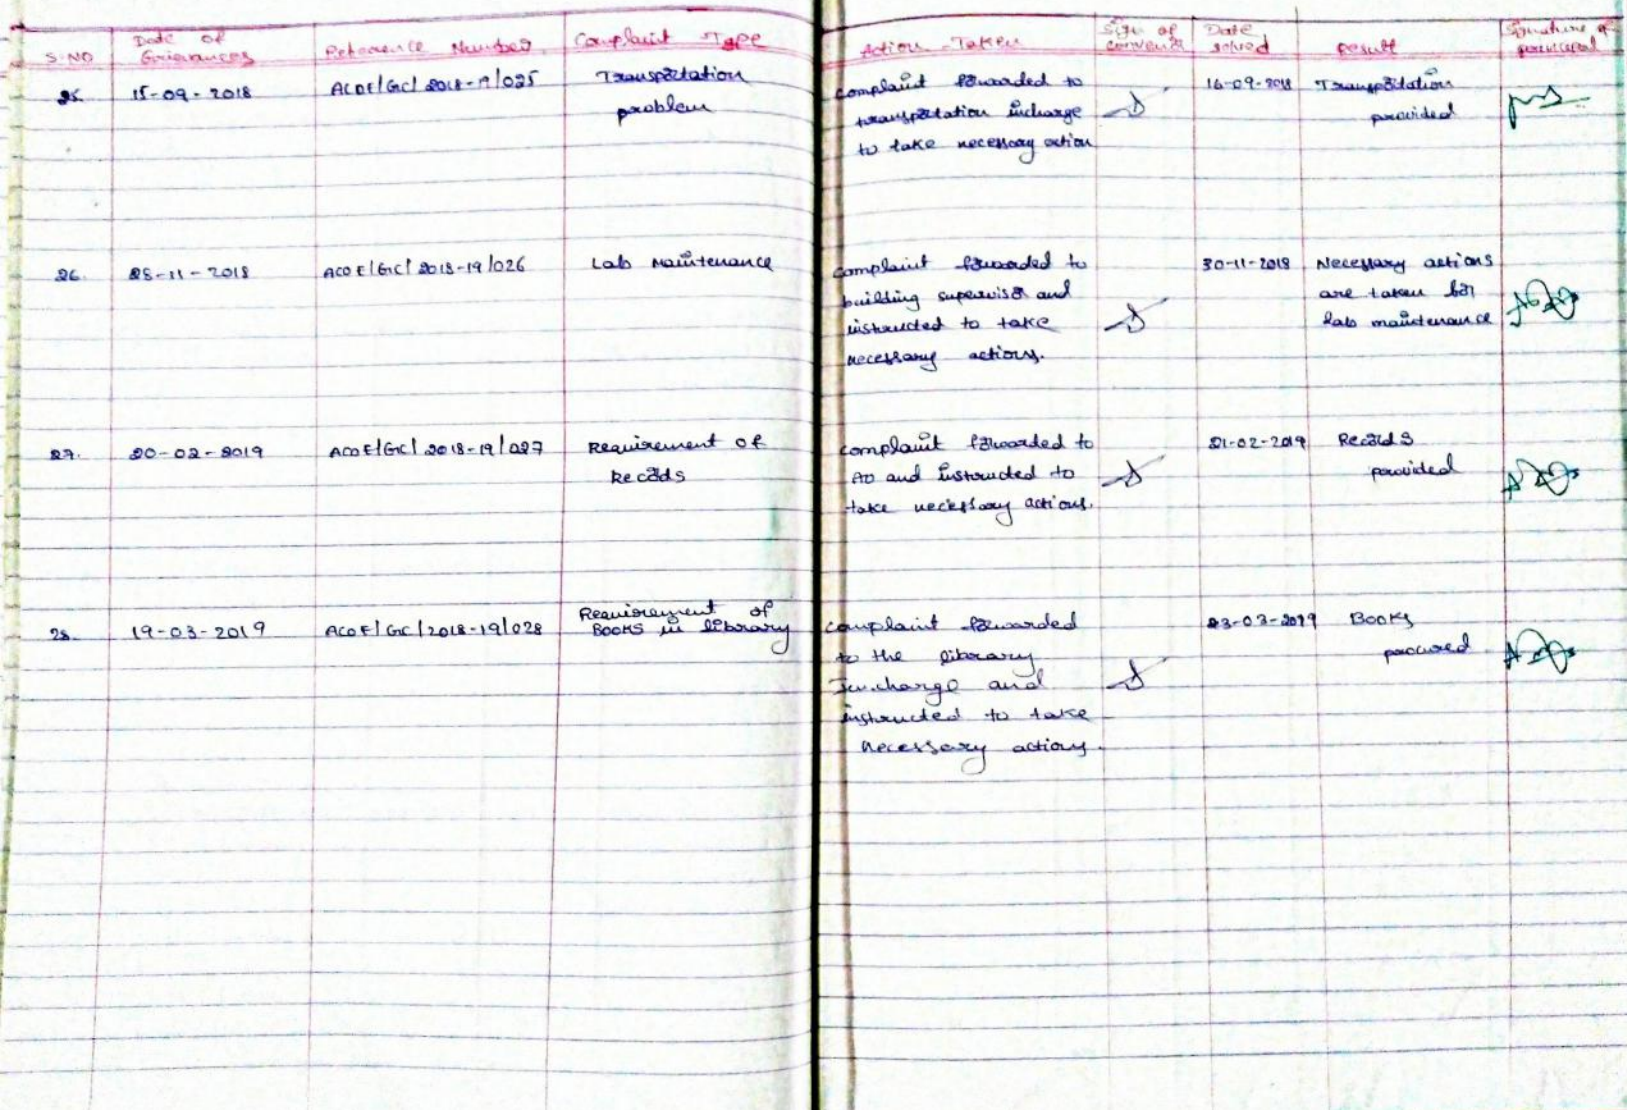 S.NO
Date of Grievances
Reference Number
Complaint Type
Action Taken
Sign of convener
Date solved
Result
Signature of principal
25. 15-09-2018 ACOE/GC/2018-19/025 Transportation
problem
complaint forwarded to
transportation incharge
to take necessary action
16-09-2018 Transportation
provided
26. 28-11-2018 ACOE/GC/2018-19/026 Lab Maintenance
complaint forwarded to
building supervisor and
instructed to take
necessary actions.
30-11-2018 Necessary actions
are taken for
lab maintenance
27. 20-02-2019 ACOE/GC/2018-19/027 Requirement of
Records
complaint forwarded to
AO and instructed to
take necessary actions.
21-02-2019 Records
provided
28. 19-03-2019 ACOE/GC/2018-19/028 Requirement of
Books in library
complaint forwarded
to the library
In.charge and
instructed to take
necessary actions.
23-03-2019 Books
procured